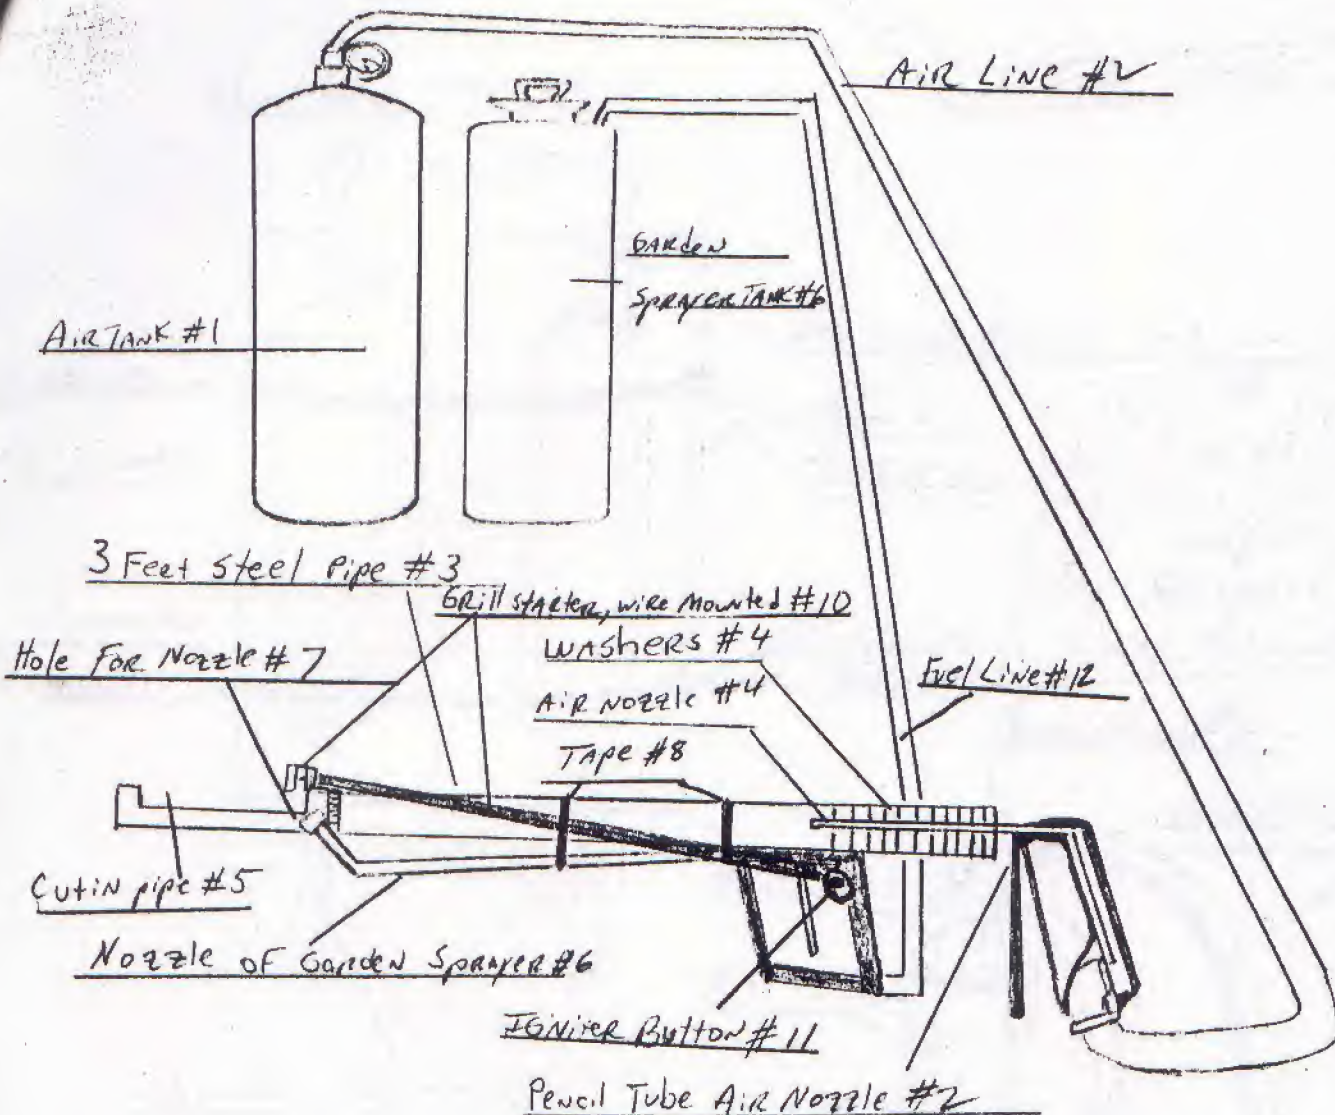 AiR Line #2
GARdeN
SpRAyeR TANK #6
AiR TANK #1
3 Feet Steel Pipe #3
GRill stARteR, wiRe Mounted #10
Hole FoR Nozzle #7
WAShers #4
AiR Nozzle #4
Fuel Line #12
TApe #8
Cut iN pipe #5
Nozzle oF Garden SprAyeR #6
IGNiteR Button #11
Pencil Tube AiR Nozzle #2